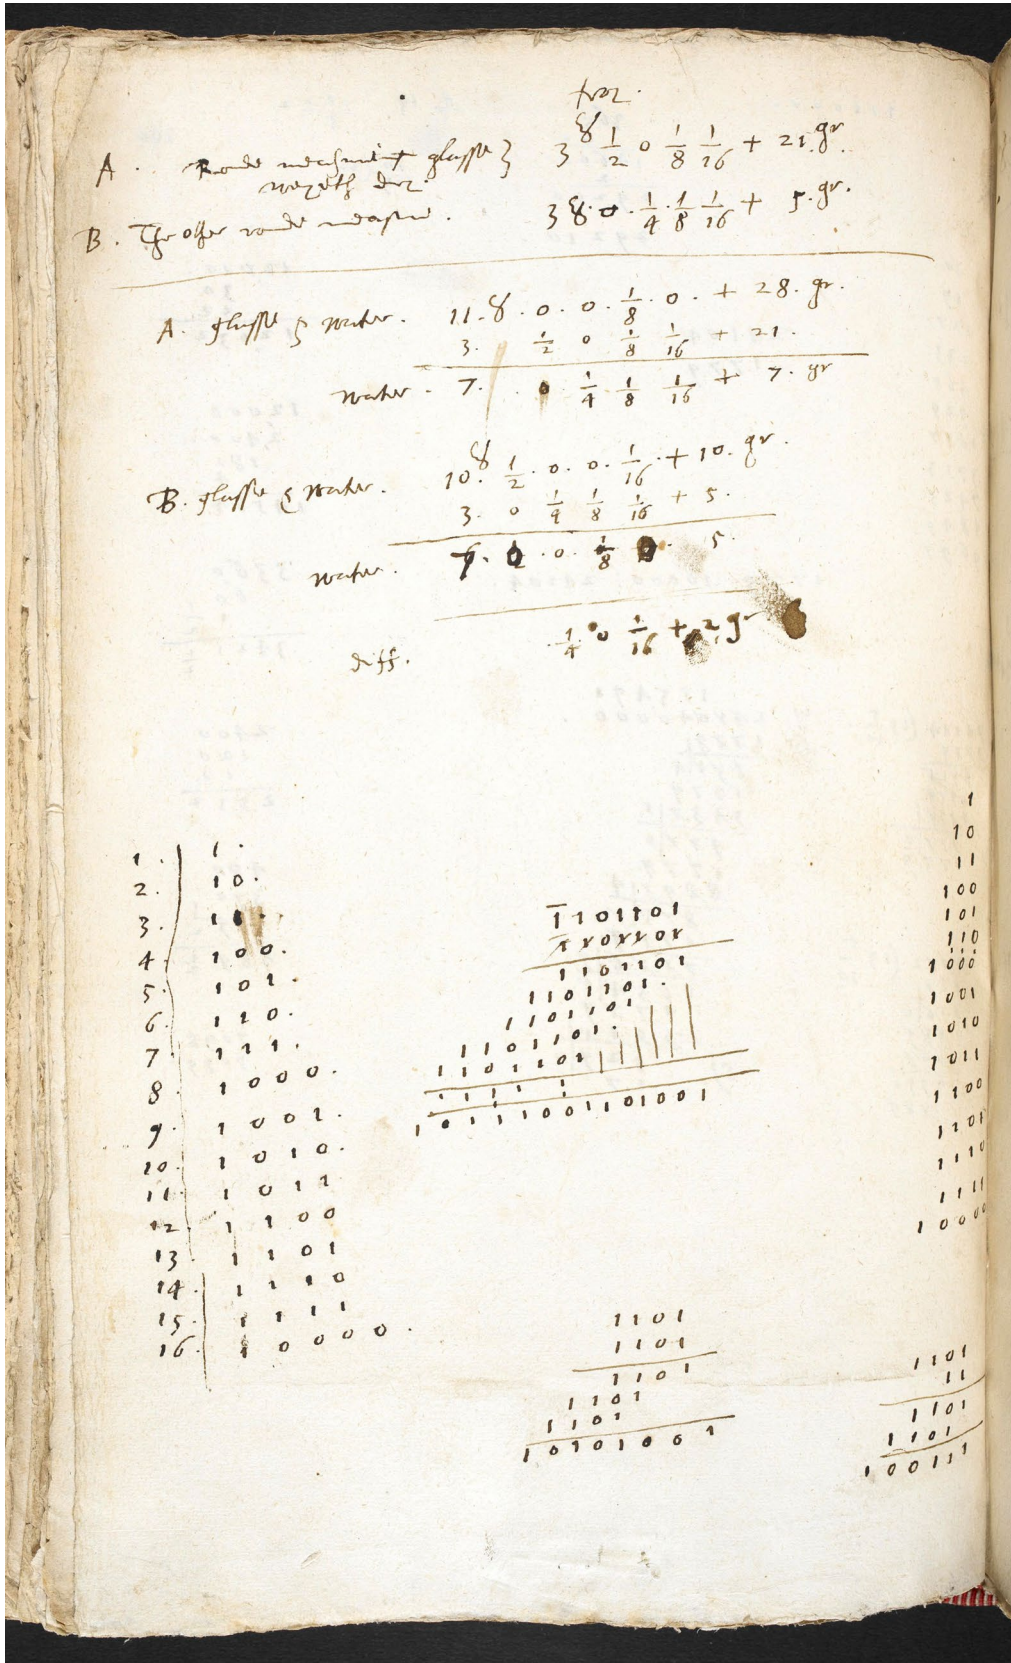 troz.
A. Rounde measuring glasse } 3 ℥ 1/2 0 1/8 1/16 + 21. gr.
wayeth dry.
B. The other rounde measure. 3 ℥. 0. 1/4. 1/8 1/16 + 5. gr.
A. glasse & water. 11. ℥. 0. 0. 1/8. 0. + 28. gr.
3. 1/2 0 1/8 1/16 + 21.
water. 7. 0 1/4 1/8 1/16 + 7. gr
B. glasse & water. 10. ℥ 1/2. 0. 0. 1/16. + 10. gr.
3. 0 1/4 1/8 1/16 + 5.
water. 7. 0. 0 1/8 0. 5.
diff. 1/4. 0 1/16 + 2 gr
1. | 1.
2. | 10.
3. | 11.
4. | 100.
5. | 101.
6. | 110.
7. | 111.
8. | 1000.
9. | 1001.
10. | 1010.
11. | 1011
12. | 1100
13. | 1101
14. | 1110
15. | 1111
16. | 10000.
1101101
1101101
1101101
1101101.
1101101
1101101.
1101101
1 1 1 1
10111001101001
1101
1101
1101
1101
1101
10101001
1
10
11
100
101
110
1000
1001
1010
1011
1100
1101
1110
1111
10000
1101
11
1101
1101
100111